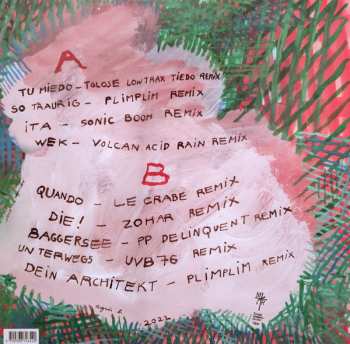 A
TU MIEDO - TOLOSE LOWTRAX TIEDO REMIX
SO TRAURIG - PLIMPLIM REMIX
ITA - SONIC BOOM REMIX
WEK - VOLCAN ACID RAIN REMIX
B
QUANDO - LE CRABE REMIX
DIE! - ZOHAR REMIX
BAGGERSEE - PP DELINQUENT REMIX
UNTERWEGS - UVB76 REMIX
DEIN ARCHITEKT - PLIMPLIM REMIX
2022